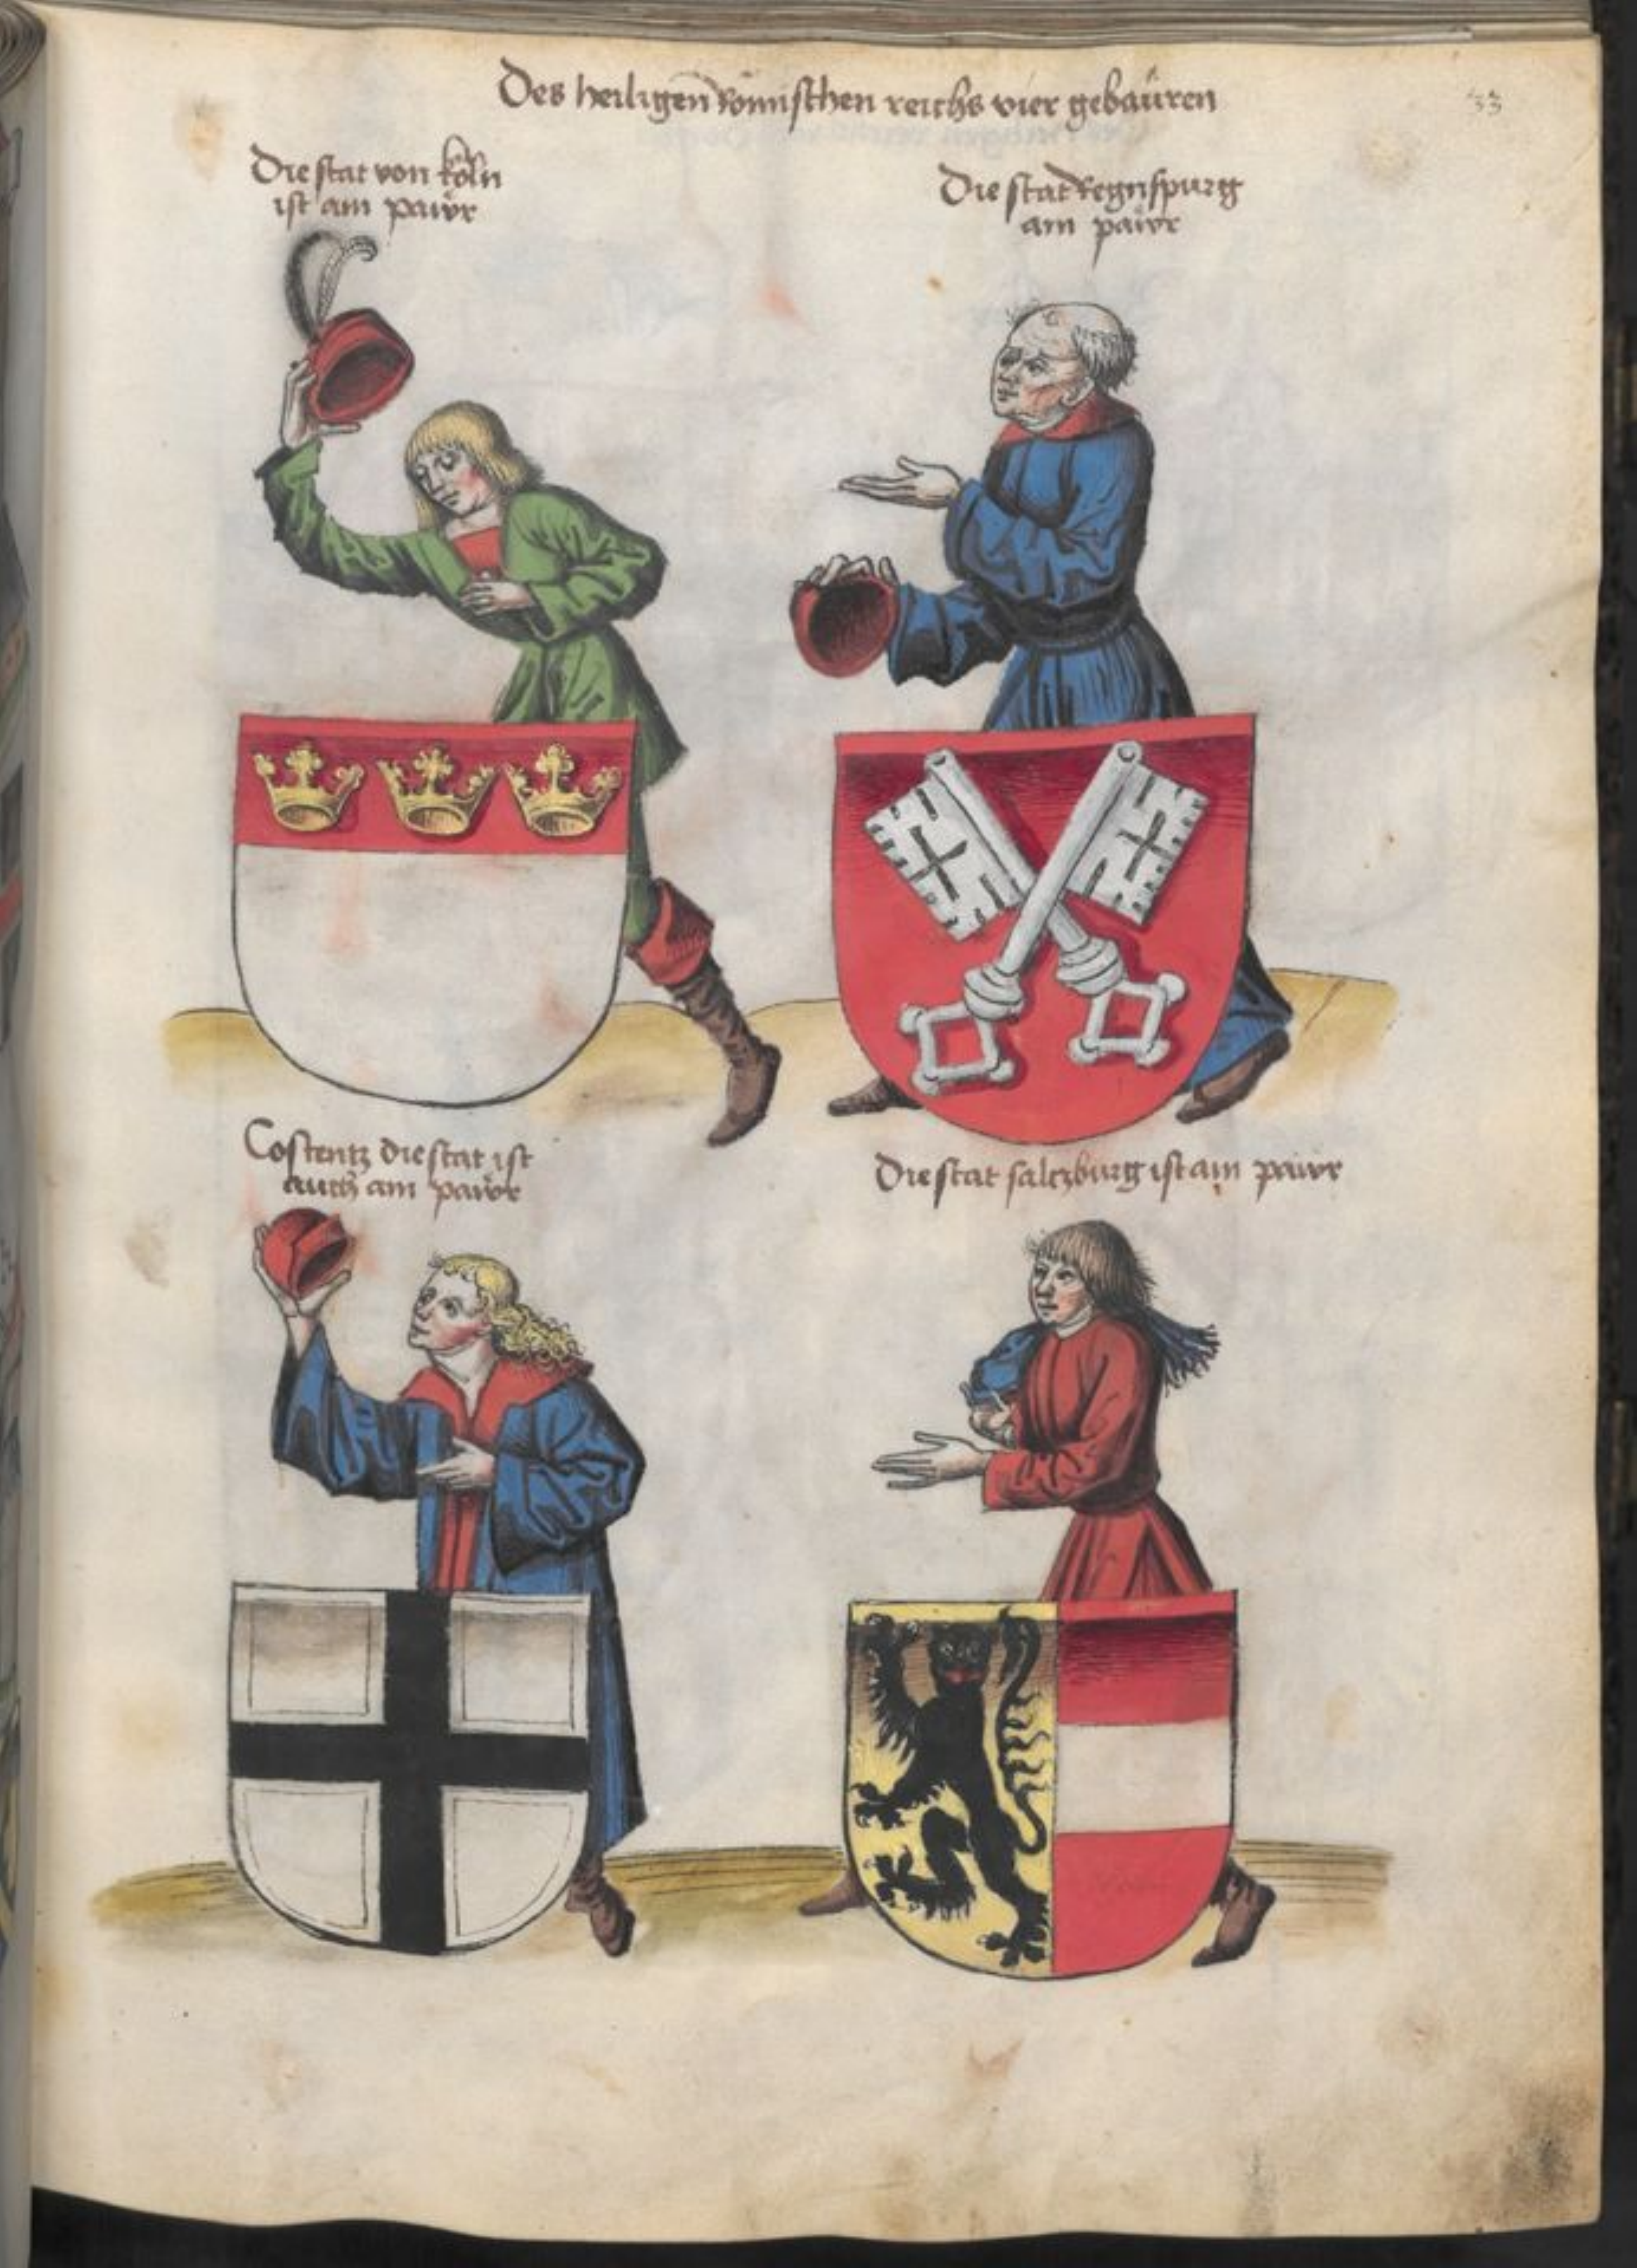 Des heiligen Römischen reichs vier gebaüren
33
Die stat von köln
ist am pawr
Die stat Regnspurg
am pawr
Costentz die stat ist
auch am pawr
Die stat saltzburg ist ain pawr